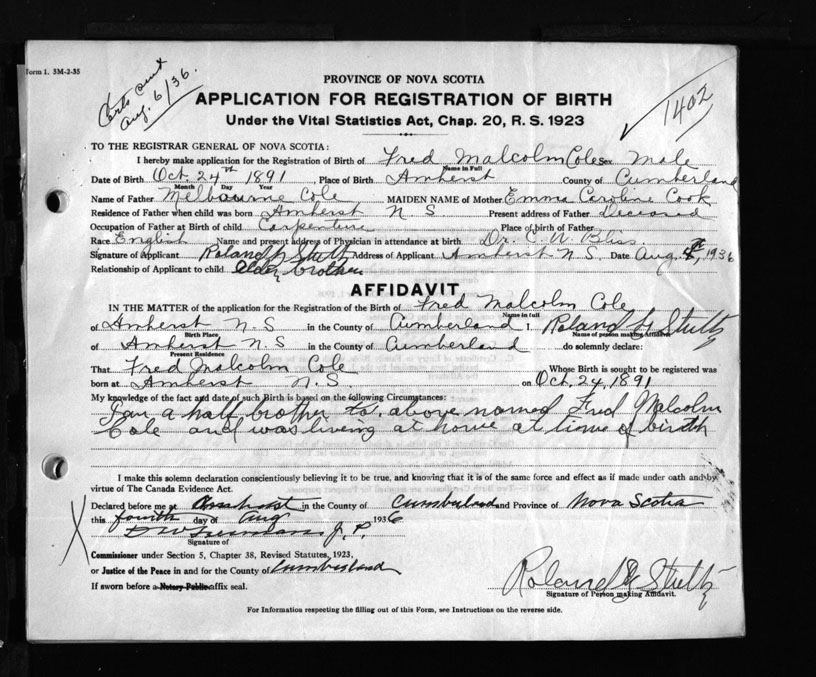 Form 1. 3M-2-35
Certs sent
Aug. 6/36.
1402
PROVINCE OF NOVA SCOTIA
APPLICATION FOR REGISTRATION OF BIRTH
Under the Vital Statistics Act, Chap. 20, R. S. 1923
TO THE REGISTRAR GENERAL OF NOVA SCOTIA:
I hereby make application for the Registration of Birth of Fred Malcolm Cole Sex Male
Name in Full
Date of Birth Oct. 24th 1891 Place of Birth Amherst County of Cumberland
Month Day Year
Name of Father Melbourne Cole MAIDEN NAME of Mother Emma Caroline Cook
Residence of Father when child was born Amherst N S Present address of Father Deceased
Occupation of Father at Birth of child Carpenture Place of birth of Father
Race English Name and present address of Physician in attendance at birth Dr. C. W. Bliss
Signature of Applicant Roland Stultz Address of Applicant Amherst N. S. Date Aug. 1936
Relationship of Applicant to child elder brother
AFFIDAVIT
IN THE MATTER of the application for the Registration of the Birth of Fred Malcolm Cole
Name in full
of Amherst N. S in the County of Cumberland I. Roland Stultz
Birth Place Name of person making Affidavit
of Amherst N. S in the County of Cumberland do solemnly declare:
Present Residence
That Fred Malcolm Cole Whose Birth is sought to be registered was
born at Amherst N. S. on Oct. 24, 1891
My knowledge of the fact and date of such Birth is based on the following Circumstances:
I am a half brother to above named Fred Malcolm
Cole and was living at home at time of birth
I make this solemn declaration conscientiously believing it to be true, and knowing that it is of the same force and effect as if made under oath and by
virtue of The Canada Evidence Act.
Declared before me at Amherst in the County of Cumberland and Province of Nova Scotia
this fourth day of Aug 1936
J. P.
Signature of
Commissioner under Section 5, Chapter 38, Revised Statutes, 1923,
or Justice of the Peace in and for the County of Cumberland
If sworn before a Notary Public affix seal.
Roland Stultz
Signature of Person making Affidavit.
For Information respecting the filling out of this Form, see Instructions on the reverse side.